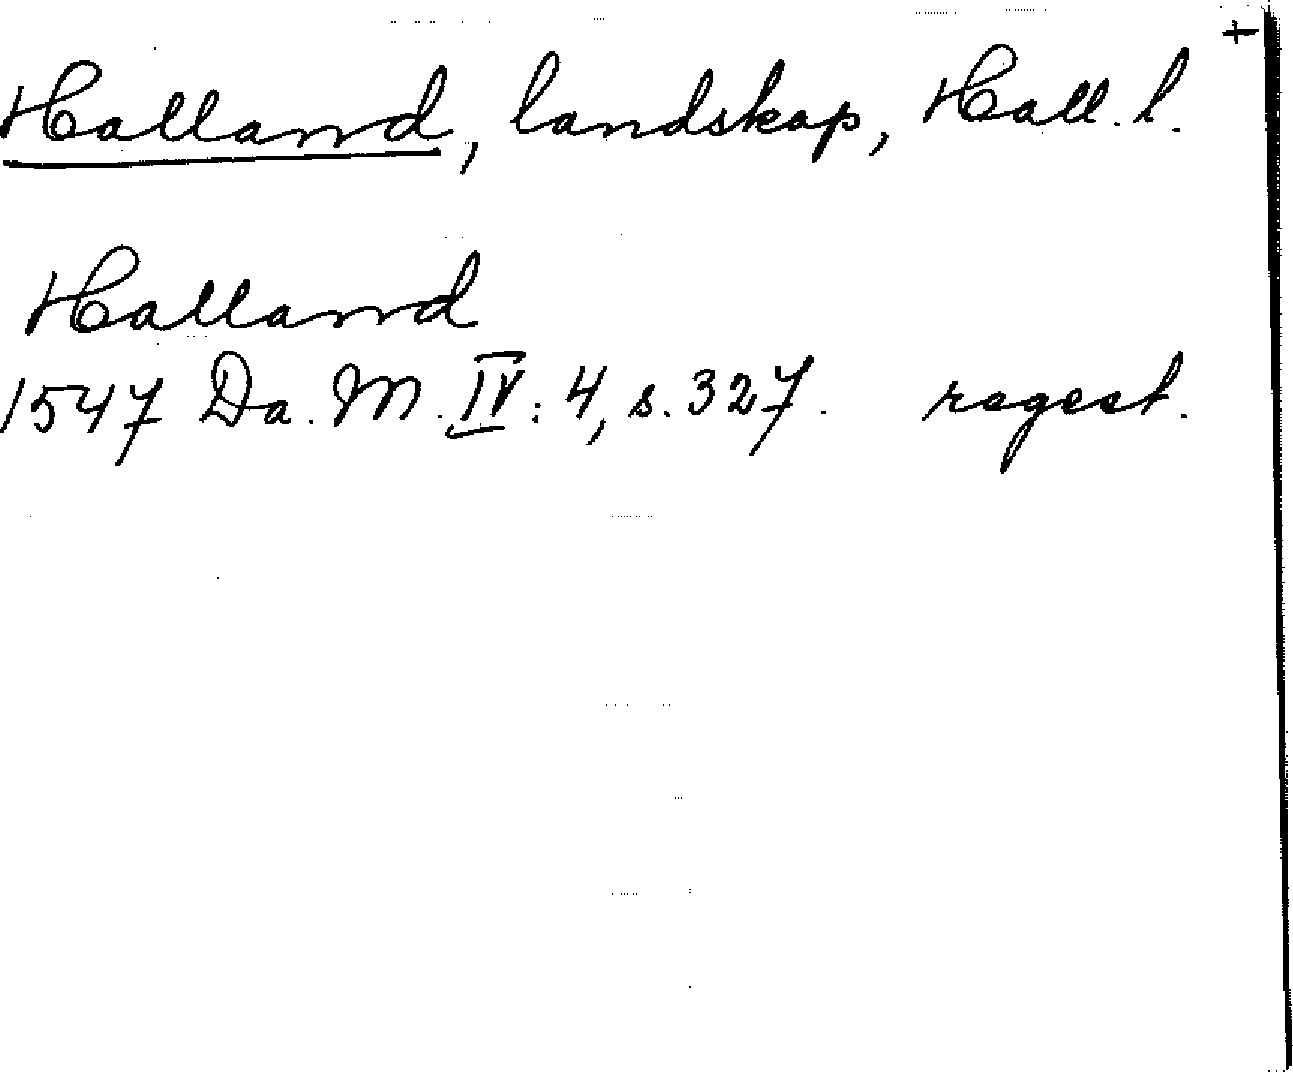 +
Halland, landskap, Hall. l.
Halland
1547 Da. M. IV: 4, s. 327. regest.